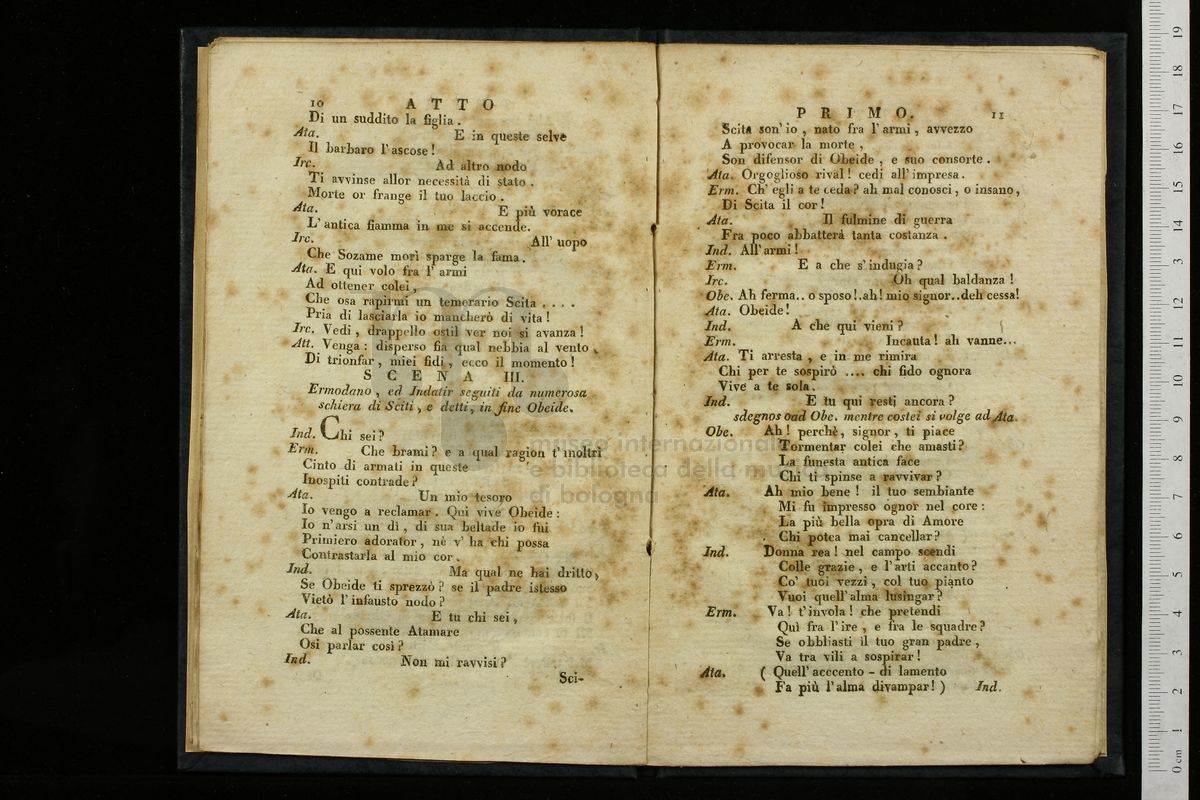 10 ATTO
Di un suddito la figlia .
Ata. E in queste selve
Il barbaro l'ascose !
Irc. Ad altro nodo
Ti avvinse allor necessità di stato .
Morte or frange il tuo laccio .
Ata. E più vorace
L'antica fiamma in me si accende.
Irc. All' uopo
Che Sozame morì sparge la fama .
Ata. E qui volo fra l'armi
Ad ottener colei ,
Che osa rapirmi un temerario Scita . . . .
Pria di lasciarla io mancherò di vita !
Irc. Vedi , drappello ostil ver noi si avanza !
Att. Venga : disperso fia qual nebbia al vento .
Di trionfar , miei fidi , ecco il momento !
SCENA III.
Ermodano , ed Indatir seguiti da numerosa
schiera di Sciti , e detti, in fine Obeide.
Ind. Chi sei ?
Erm. Che brami ? e a qual ragion t'inoltri
Cinto di armati in queste
Inospiti contrade ?
Ata. Un mio tesoro
Io vengo a reclamar . Qui vive Obeide :
Io n'arsi un dì , di sua beltade io fui
Primiero adorator , nè v' ha chi possa
Contrastarla al mio cor .
Ind. Ma qual ne hai dritto,
Se Obeide ti sprezzò ? se il padre istesso
Vietò l'infausto nodo ?
Ata. E tu chi sei ,
Che al possente Atamare
Osi parlar così ?
Ind. Non mi ravvisi ?
Sci-
PRIMO. 11
Scita son' io , nato fra l'armi , avvezzo
A provocar la morte ,
Son difensor di Obeide , e suo consorte .
Ata. Orgoglioso rival ! cedi all'impresa .
Erm. Ch' egli a te ceda ? ah mal conosci , o insano,
Di Scita il cor !
Ata. Il fulmine di guerra
Fra poco abbatterà tanta costanza .
Ind. All'armi !
Erm. E a che s'indugia ?
Irc. Oh qual baldanza !
Obe. Ah ferma.. o sposo !..ah! mio signor..deh cessa!
Ata. Obeide !
Ind. A che qui vieni ?
Erm. Incauta ! ah vanne...
Ata. Ti arresta , e in me rimira
Chi per te sospirò .... chi fido ognora
Vive a te sola .
Ind. E tu qui resti ancora ?
sdegnos oad Obe. mentre costei si volge ad Ata.
Obe. Ah ! perchè, signor , ti piace
Tormentar colei che amasti ?
La funesta antica face
Chi ti spinse a ravvivar ?
Ata. Ah mio bene ! il tuo sembiante
Mi fu impresso ognor nel core :
La più bella opra di Amore
Chi potea mai cancellar ?
Ind. Donna rea ! nel campo scendi
Colle grazie , e l'arti accanto ?
Co' tuoi vezzi , col tuo pianto
Vuoi quell'alma lusingar ?
Erm. Va ! t'invola ! che pretendi
Quì fra l'ire , e fra le squadre ?
Se obbliasti il tuo gran padre ,
Va tra vili a sospirar !
Ata. ( Quell' acccento - di lamento
Fa più l'alma divampar ! ) Ind.
museo internazionale
e biblioteca della musica
di bologna
0 cm 1 2 3 4 5 6 7 8 9 10 11 12 13 14 15 16 17 18 19